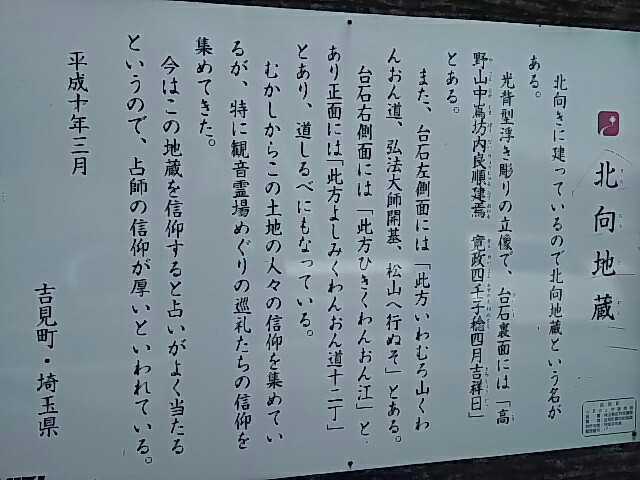 北向地蔵
北向きに建っているので北向地蔵という名が
ある。
光背型浮き彫りの立像で、台石裏面には「高
野山中嶌坊内良順建焉　寛政四壬子稔四月吉祥日」
とある。
また、台石左側面には「此方いわむろ山くわ
んおん道、弘法大師開基、松山へ行ぬそ」とある。
台石右側面には「此方ひきくわんおん江」と
あり正面には「此方よしみくわんおん道十二丁」
とあり、道しるべにもなっている。
むかしからこの土地の人々の信仰を集めてい
るが、特に観音霊場めぐりの巡礼たちの信仰を
集めてきた。
今はこの地蔵を信仰すると占いがよく当たる
というので、占師の信仰が厚いといわれている。
平成十年三月
吉見町・埼玉県